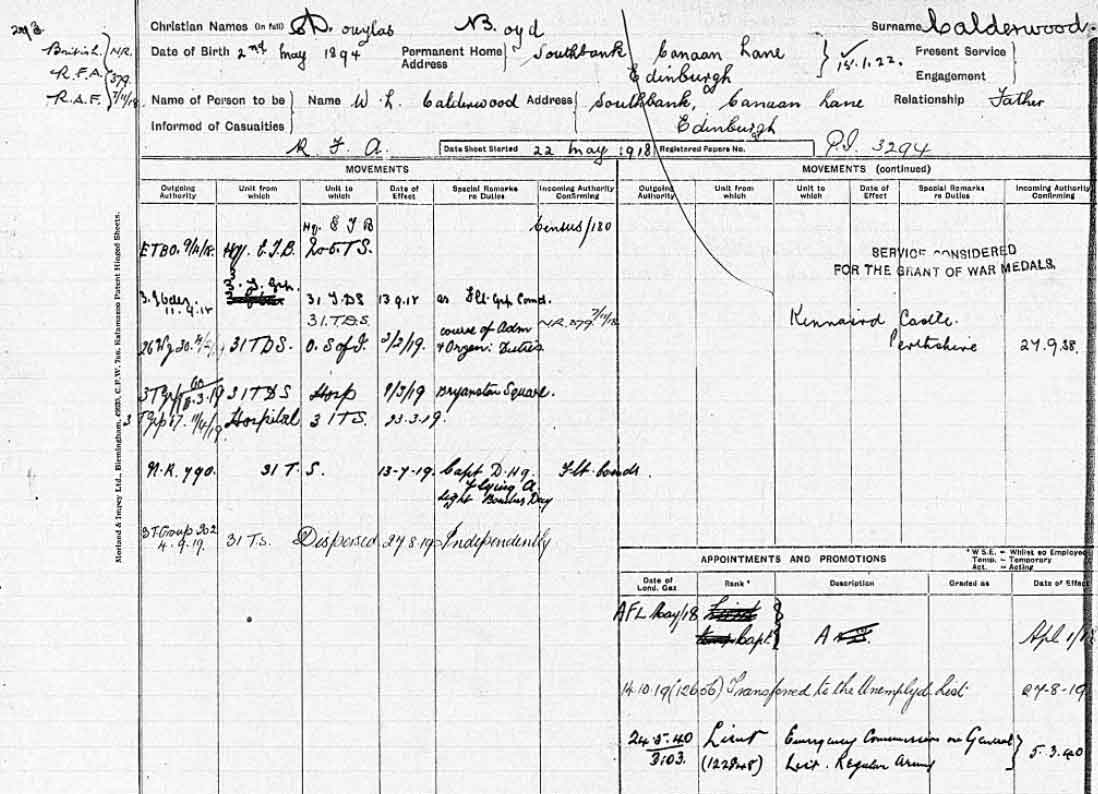 Christian Names (in full) Douglas Boyd Surname Calderwood
British. N.R.
R.F.A. 379
R.A.F. 7/11/18
Date of Birth 2nd May 1894 Permanent Home Address Southbank Canaan Lane Edinburgh 15.1.22. Present Service Engagement
Name of Person to be Informed of Casualties Name W. L. Calderwood Address Southbank, Canaan Lane Edinburgh Relationship Father
R F A. Date Sheet Started 22 May 1918 Registered Papers No. P.I. 3294
MOVEMENTS
Outgoing Authority Unit from which Unit to which Date of Effect Special Remarks re Duties Incoming Authority Confirming
Census/180
11.9.18 31 T.DS 13 9.18 as Flt. Grp Comd.
31.T.D.S. N.R. 379 7/11/18
31 TDS. O. S of I. 2/2/19. course of Adm & Organ: Duties
31 TDS Hosp 9/3/19 Bryanston Square.
Hospital 31TS. 23.3.19.
N.R. 790. 31 T. S. 13-7-19. Capt D. Hq. Flt. Comdr.
Flying A.
Light Bombers Day
3T. Group 302 4.9.19. 31 Ts. Dispersed 27 8.19 Independently
Morland & Impey Ltd., Birmingham, Kalamazoo Patent Hinged Sheets.
MOVEMENTS (continued)
Outgoing Authority Unit from which Unit to which Date of Effect Special Remarks re Duties Incoming Authority Confirming
SERVICE CONSIDERED
FOR THE GRANT OF WAR MEDALS.
Kinnaird Castle.
Perthshire 27.9.38.
APPOINTMENTS AND PROMOTIONS
* W.S.E. – Whilst so Employed
Temp. – Temporary
Act. – Acting
Date of Lond. Gaz Rank * Description Graded as Date of Effect
AFL May/18
Capt. A Apl 1/18
14.10.19 (12656) Transferred to the Unemplyd. List 27-8-19
24.5.40 Lieut Emergency Commission on General
3103. (122948) List. Regular Army 5.3.40